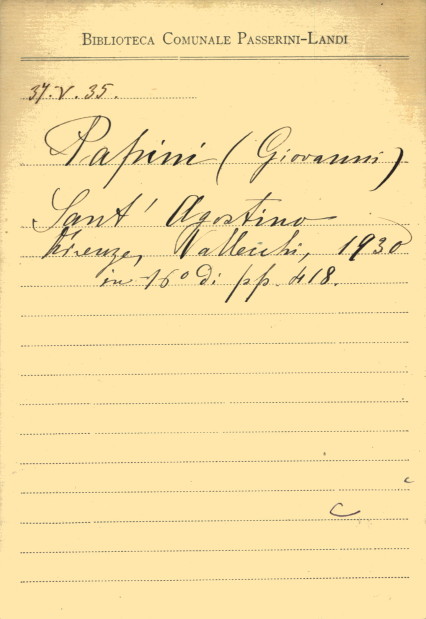 BIBLIOTECA COMUNALE PASSERINI-LANDI
37.V.35.
Papini (Giovanni)
Sant' Agostino
Firenze, Vallecchi, 1930
in 16° di pp. 418.
C